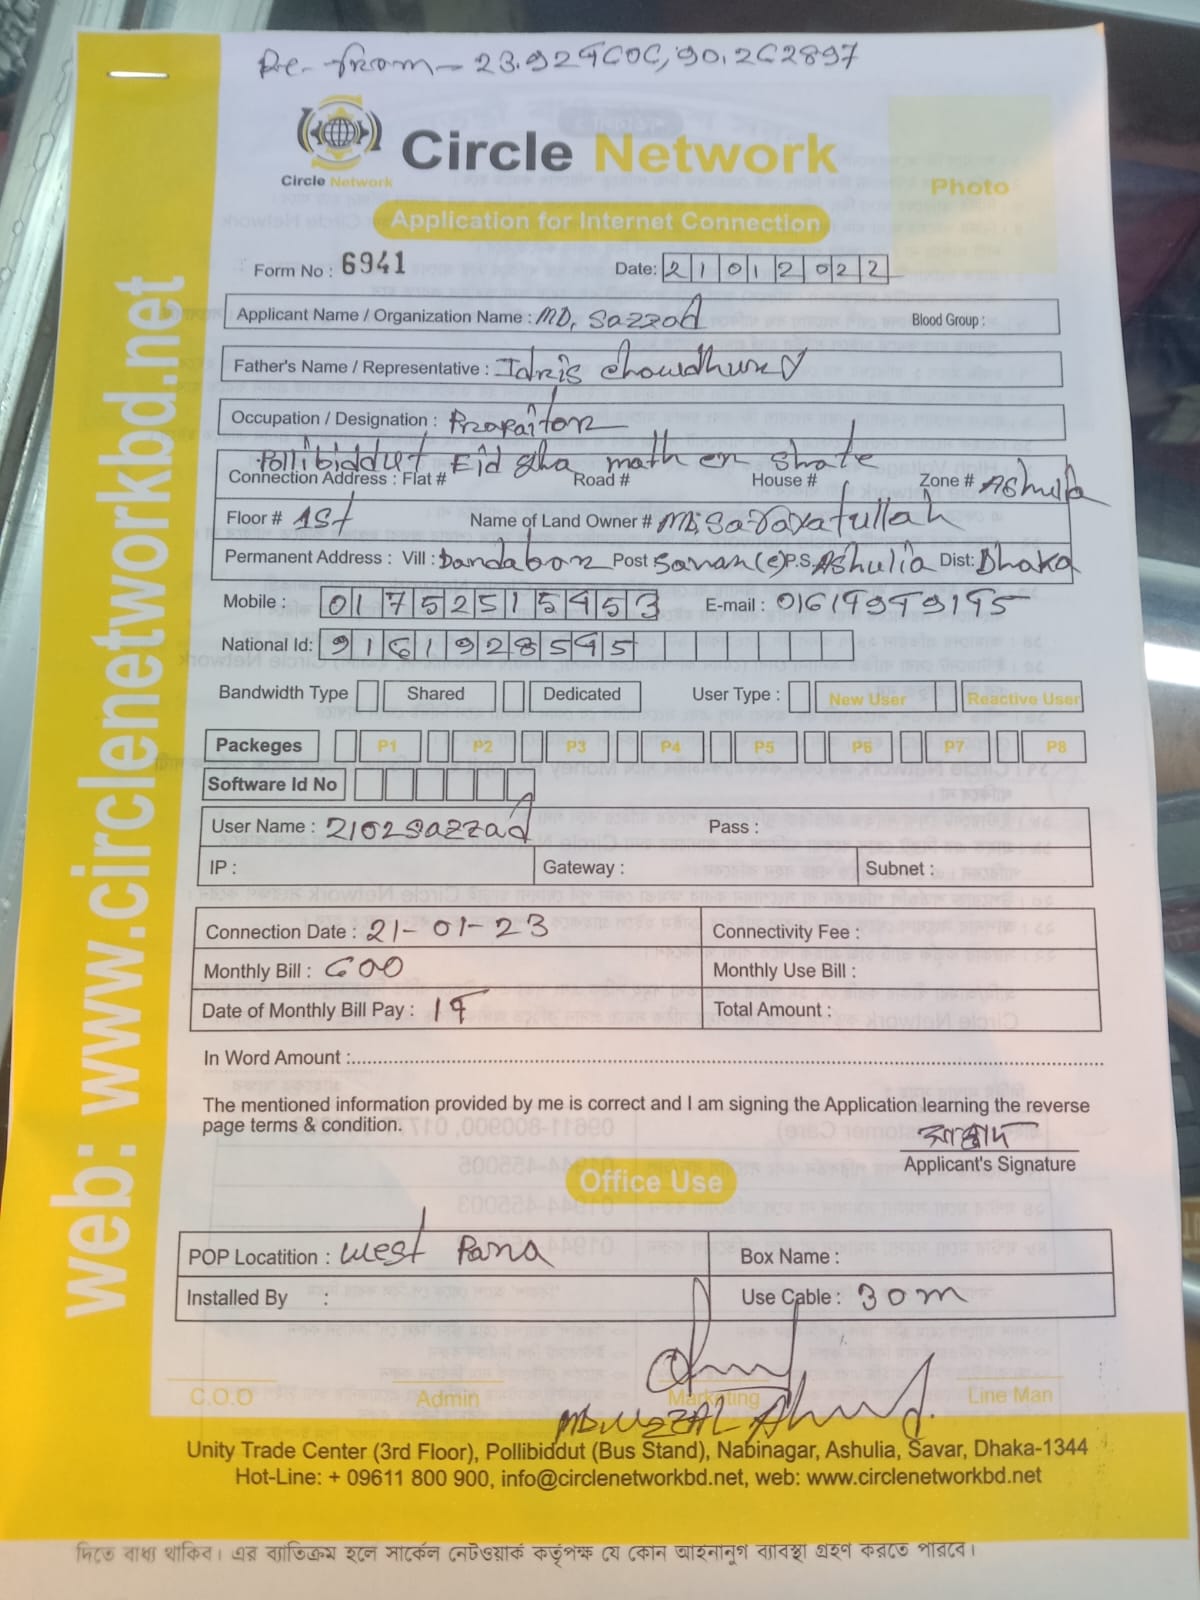 Re-from - 23.924606, 90.262897
Circle Network
Circle Network
Photo
Application for Internet Connection
Form No : 6941 Date: 21012022
Applicant Name / Organization Name : MD. Sazzad Blood Group :
Father's Name / Representative : Idris Chowdhury
Occupation / Designation : Propaitor
Pollibiddut Eid gha math er
Connection Address : Flat # Road # House # Zone # Ashulia
Floor # 1st Name of Land Owner #
Permanent Address : Vill : Post P.S. Ashulia Dist: Dhaka
Mobile : 01752515453 E-mail :
National Id:
Bandwidth Type Shared Dedicated User Type : New User Reactive User
Packeges P1 P2 P3 P4 P5 P6 P7 P8
Software Id No
User Name : 2102sazzad Pass :
IP : Gateway : Subnet :
Connection Date : 21-01-23 Connectivity Fee :
Monthly Bill : 600 Monthly Use Bill :
Date of Monthly Bill Pay : Total Amount :
In Word Amount :
The mentioned information provided by me is correct and I am signing the Application learning the reverse
page terms & condition.
সাজ্জাদ
Applicant's Signature
Office Use
POP Locatition : West Para Box Name :
Installed By : Use Cable : 30m
C.O.O Admin Marketing Line Man
Unity Trade Center (3rd Floor), Pollibiddut (Bus Stand), Nabinagar, Ashulia, Savar, Dhaka-1344
Hot-Line: + 09611 800 900, info@circlenetworkbd.net, web: www.circlenetworkbd.net
দিতে বাধ্য থাকিব। এর ব্যাতিক্রম হলে সার্কেল নেটওয়ার্ক কর্তৃপক্ষ যে কোন আইনানুগ ব্যাবস্থা গ্রহণ করতে পারবে।
web: www.circlenetworkbd.net